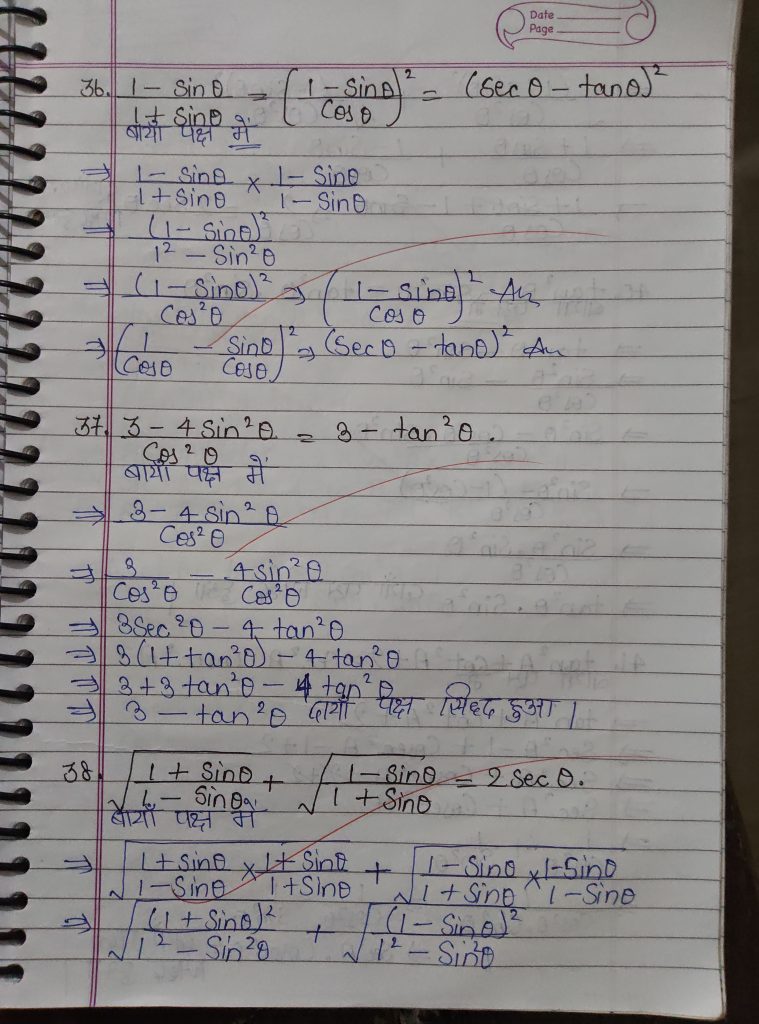 Date
Page
36. (1 - Sinθ)/(1 + Sinθ) = ((1 - Sinθ)/Cosθ)² = (Secθ - tanθ)²
बायाँ पक्ष में
⇒ (1 - Sinθ)/(1 + Sinθ) × (1 - Sinθ)/(1 - Sinθ)
⇒ (1 - Sinθ)²/(1² - Sin²θ)
⇒ (1 - Sinθ)²/Cos²θ ⇒ ((1 - Sinθ)/Cosθ)² Ans
⇒ (1/Cosθ - Sinθ/Cosθ)² ⇒ (Secθ - tanθ)² Ans
37. (3 - 4Sin²θ)/Cos²θ = 3 - tan²θ.
बायाँ पक्ष में
⇒ (3 - 4Sin²θ)/Cos²θ
⇒ 3/Cos²θ - 4sin²θ/Cos²θ
⇒ 3Sec²θ - 4tan²θ
⇒ 3(1 + tan²θ) - 4tan²θ
⇒ 3 + 3tan²θ - 4tan²θ
⇒ 3 - tan²θ दायाँ पक्ष सिद्ध हुआ।
38. √((1 + Sinθ)/(1 - Sinθ)) + √((1 - Sinθ)/(1 + Sinθ)) = 2Secθ.
बायाँ पक्ष में
⇒ √((1 + Sinθ)/(1 - Sinθ) × (1 + Sinθ)/(1 + Sinθ)) + √((1 - Sinθ)/(1 + Sinθ) × (1 - Sinθ)/(1 - Sinθ))
⇒ √((1 + Sinθ)²/(1² - Sin²θ)) + √((1 - Sinθ)²/(1² - Sin²θ))